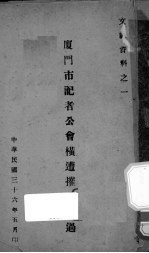 文獻資料之一
廈門市記者公會橫遭摧
過
中華民國三十六年五月